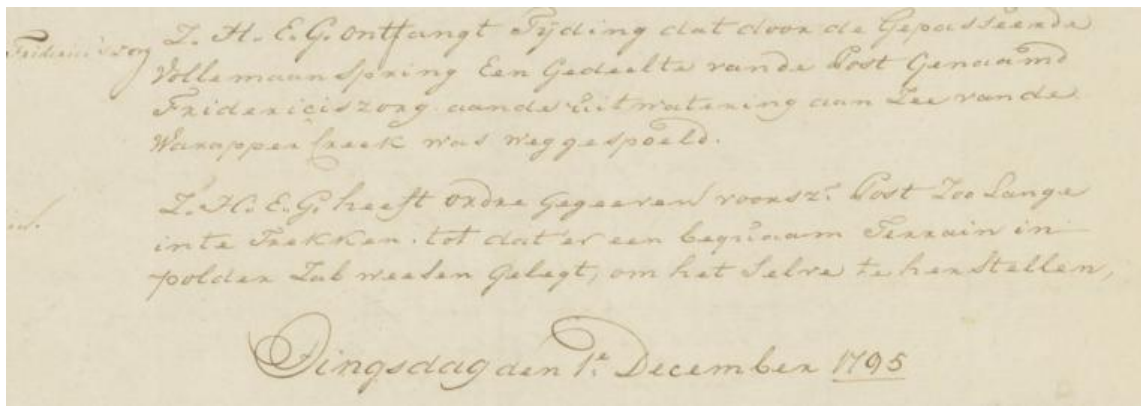 Fridericiszorg
Z. H. E. G. ontfangt Tijding dat door de Gepasseerde
Vollemaan Spring Een Gedeelte van de Post Genaamd
Fridericiszorg aan de uitwatering aan Zee van de
Warapper Creek was weggespoeld.
id.
Z. H. E. G. heeft ordre gegeeven voorsz. Post Zoo Lange
in te Trekken. tot dat er een bequaam Terrain in
polder Zal weesen gelegt, om het Selve te herstellen,
Dingsdag den 1e December 1795